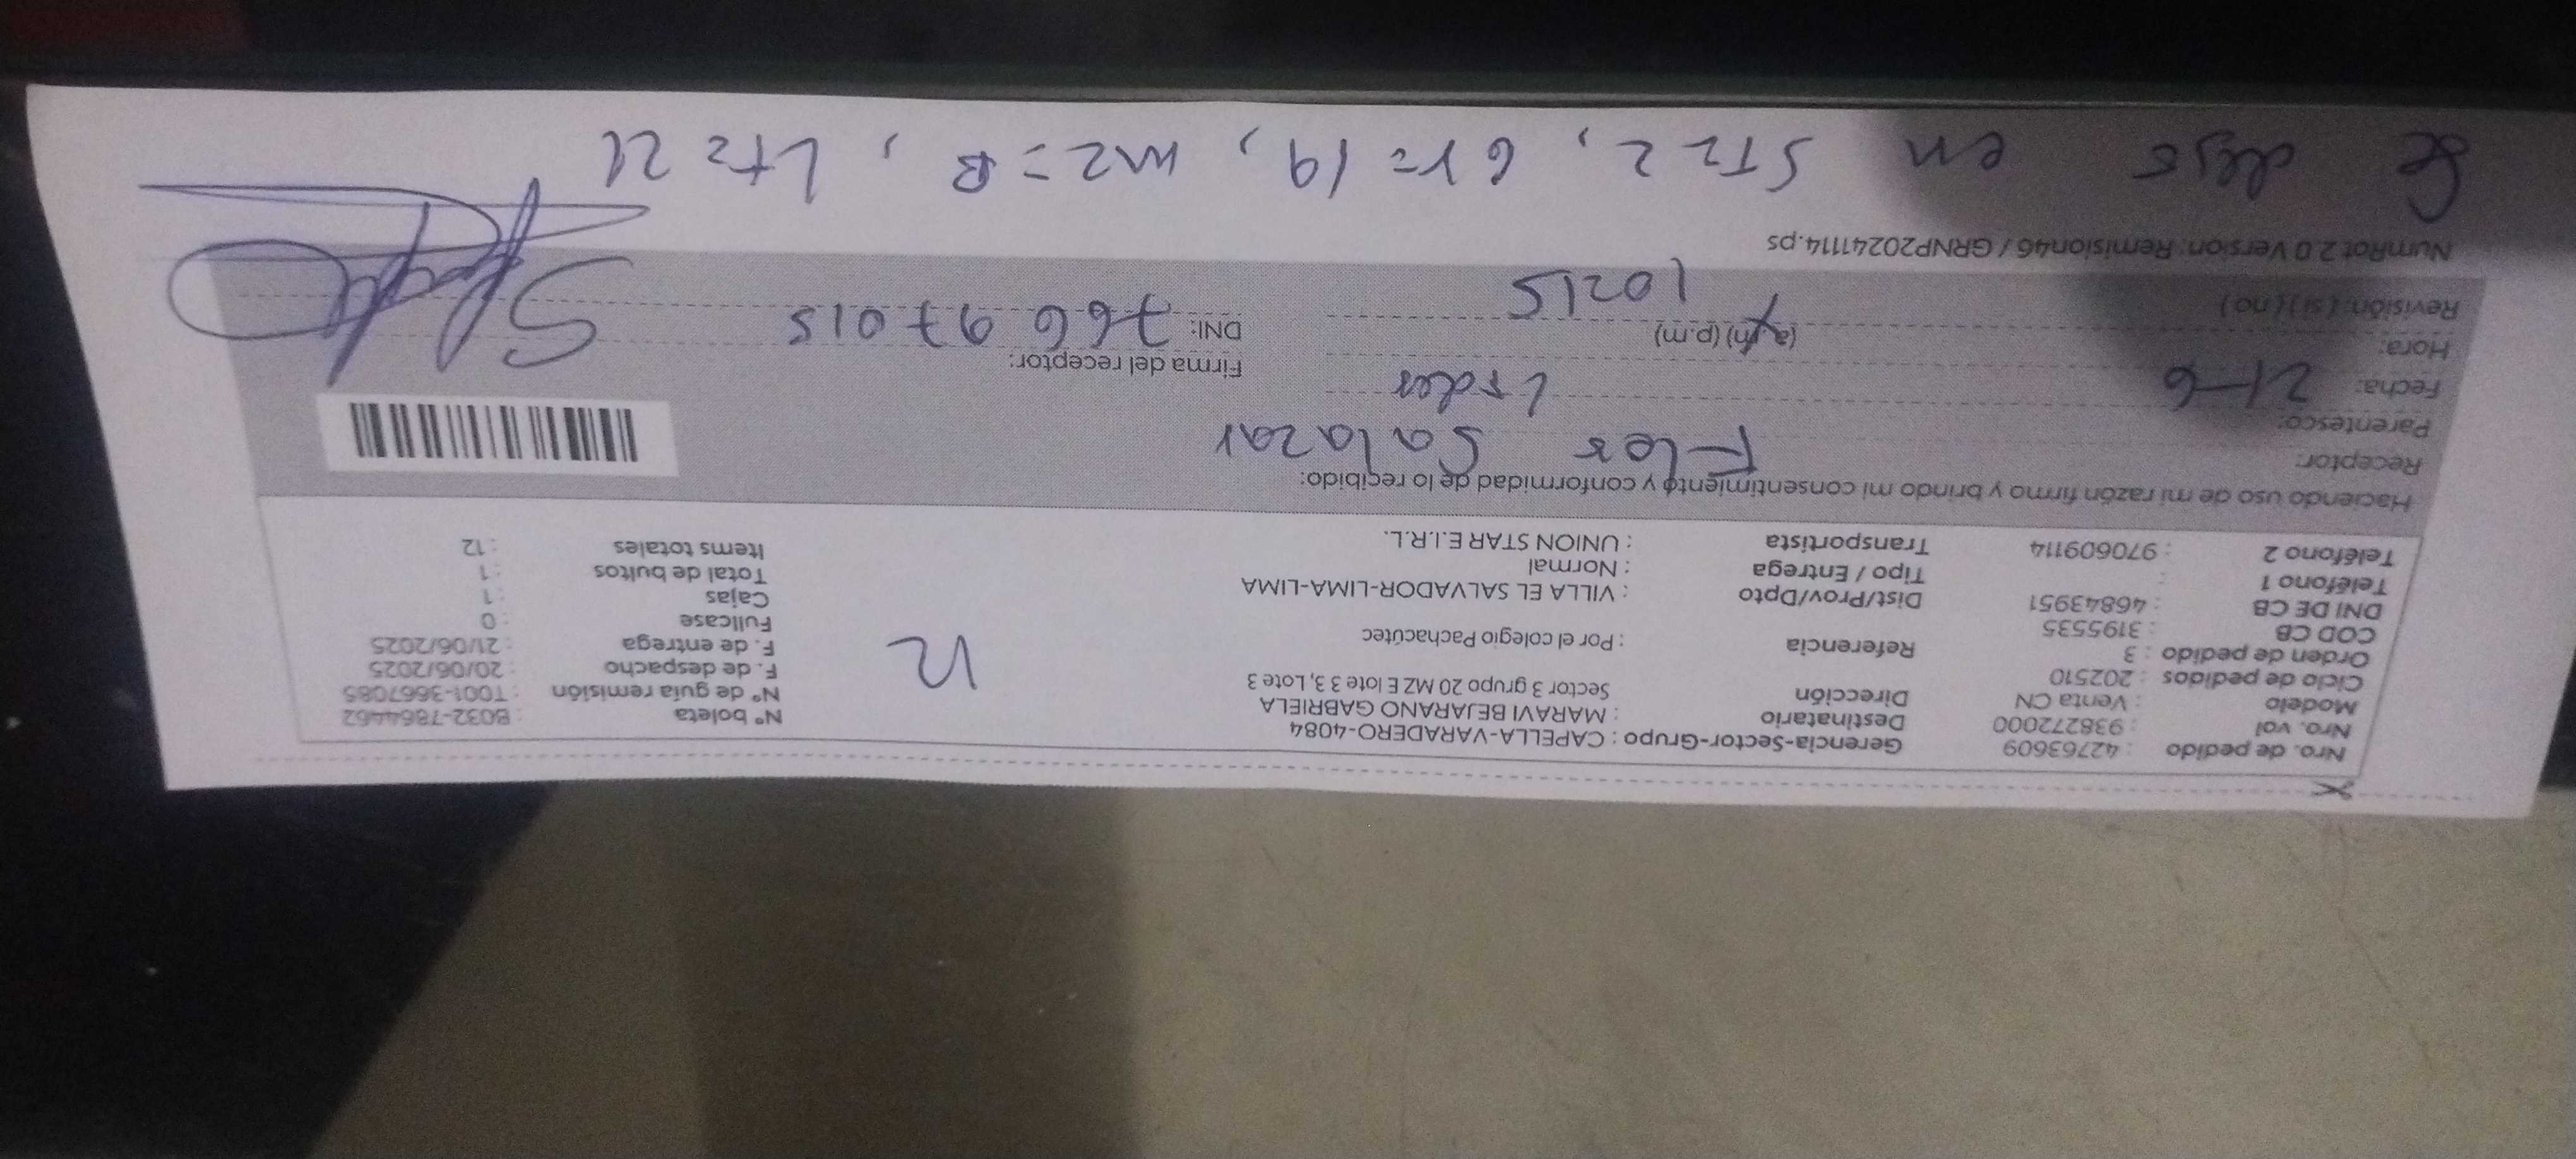 Nro. de pedido : 42763609 Gerencia-Sector-Grupo : CAPELLA-VARADERO-4084 N° boleta : B032-7864462
Nro. vol : 938272000 Destinatario : MARAVI BEJARANO GABRIELA N° de guía remisión : T001-3667085
Modelo : Venta CN Dirección Sector 3 grupo 20 MZ E lote 3 3, Lote 3 F. de despacho : 20/06/2025
Ciclo de pedidos : 202510 F. de entrega : 21/06/2025
Orden de pedido : 3 Referencia : Por el colegio Pachacútec Fullcase : 0
COD CB : 3195535 Cajas : 1
DNI DE CB : 46843951 Dist/Prov/Dpto : VILLA EL SALVADOR-LIMA-LIMA Total de bultos : 1
Teléfono 1 : Tipo / Entrega : Normal Items totales : 12
Teléfono 2 : 970609114 Transportista : UNION STAR E.I.R.L.
12
Haciendo uso de mi razón firmo y brindo mi consentimiento y conformidad de lo recibido:
Receptor: Flor Salazar
Parentesco: Lider
Fecha: 21-6 Firma del receptor:
Hora: (a.m) (p.m) DNI: 76697015
Revisión: ( si ) ( no ) 10215
NumRot 2.0 Version: Remision46 / GRNP20241114.ps
Se dejo en ST=2, Gr=19, mz=B, Lt=21